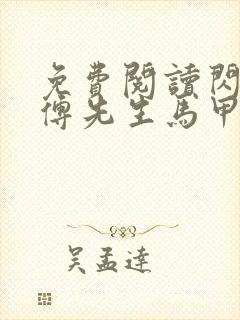 免費閱讀閃
傅先生馬甲
吴孟達